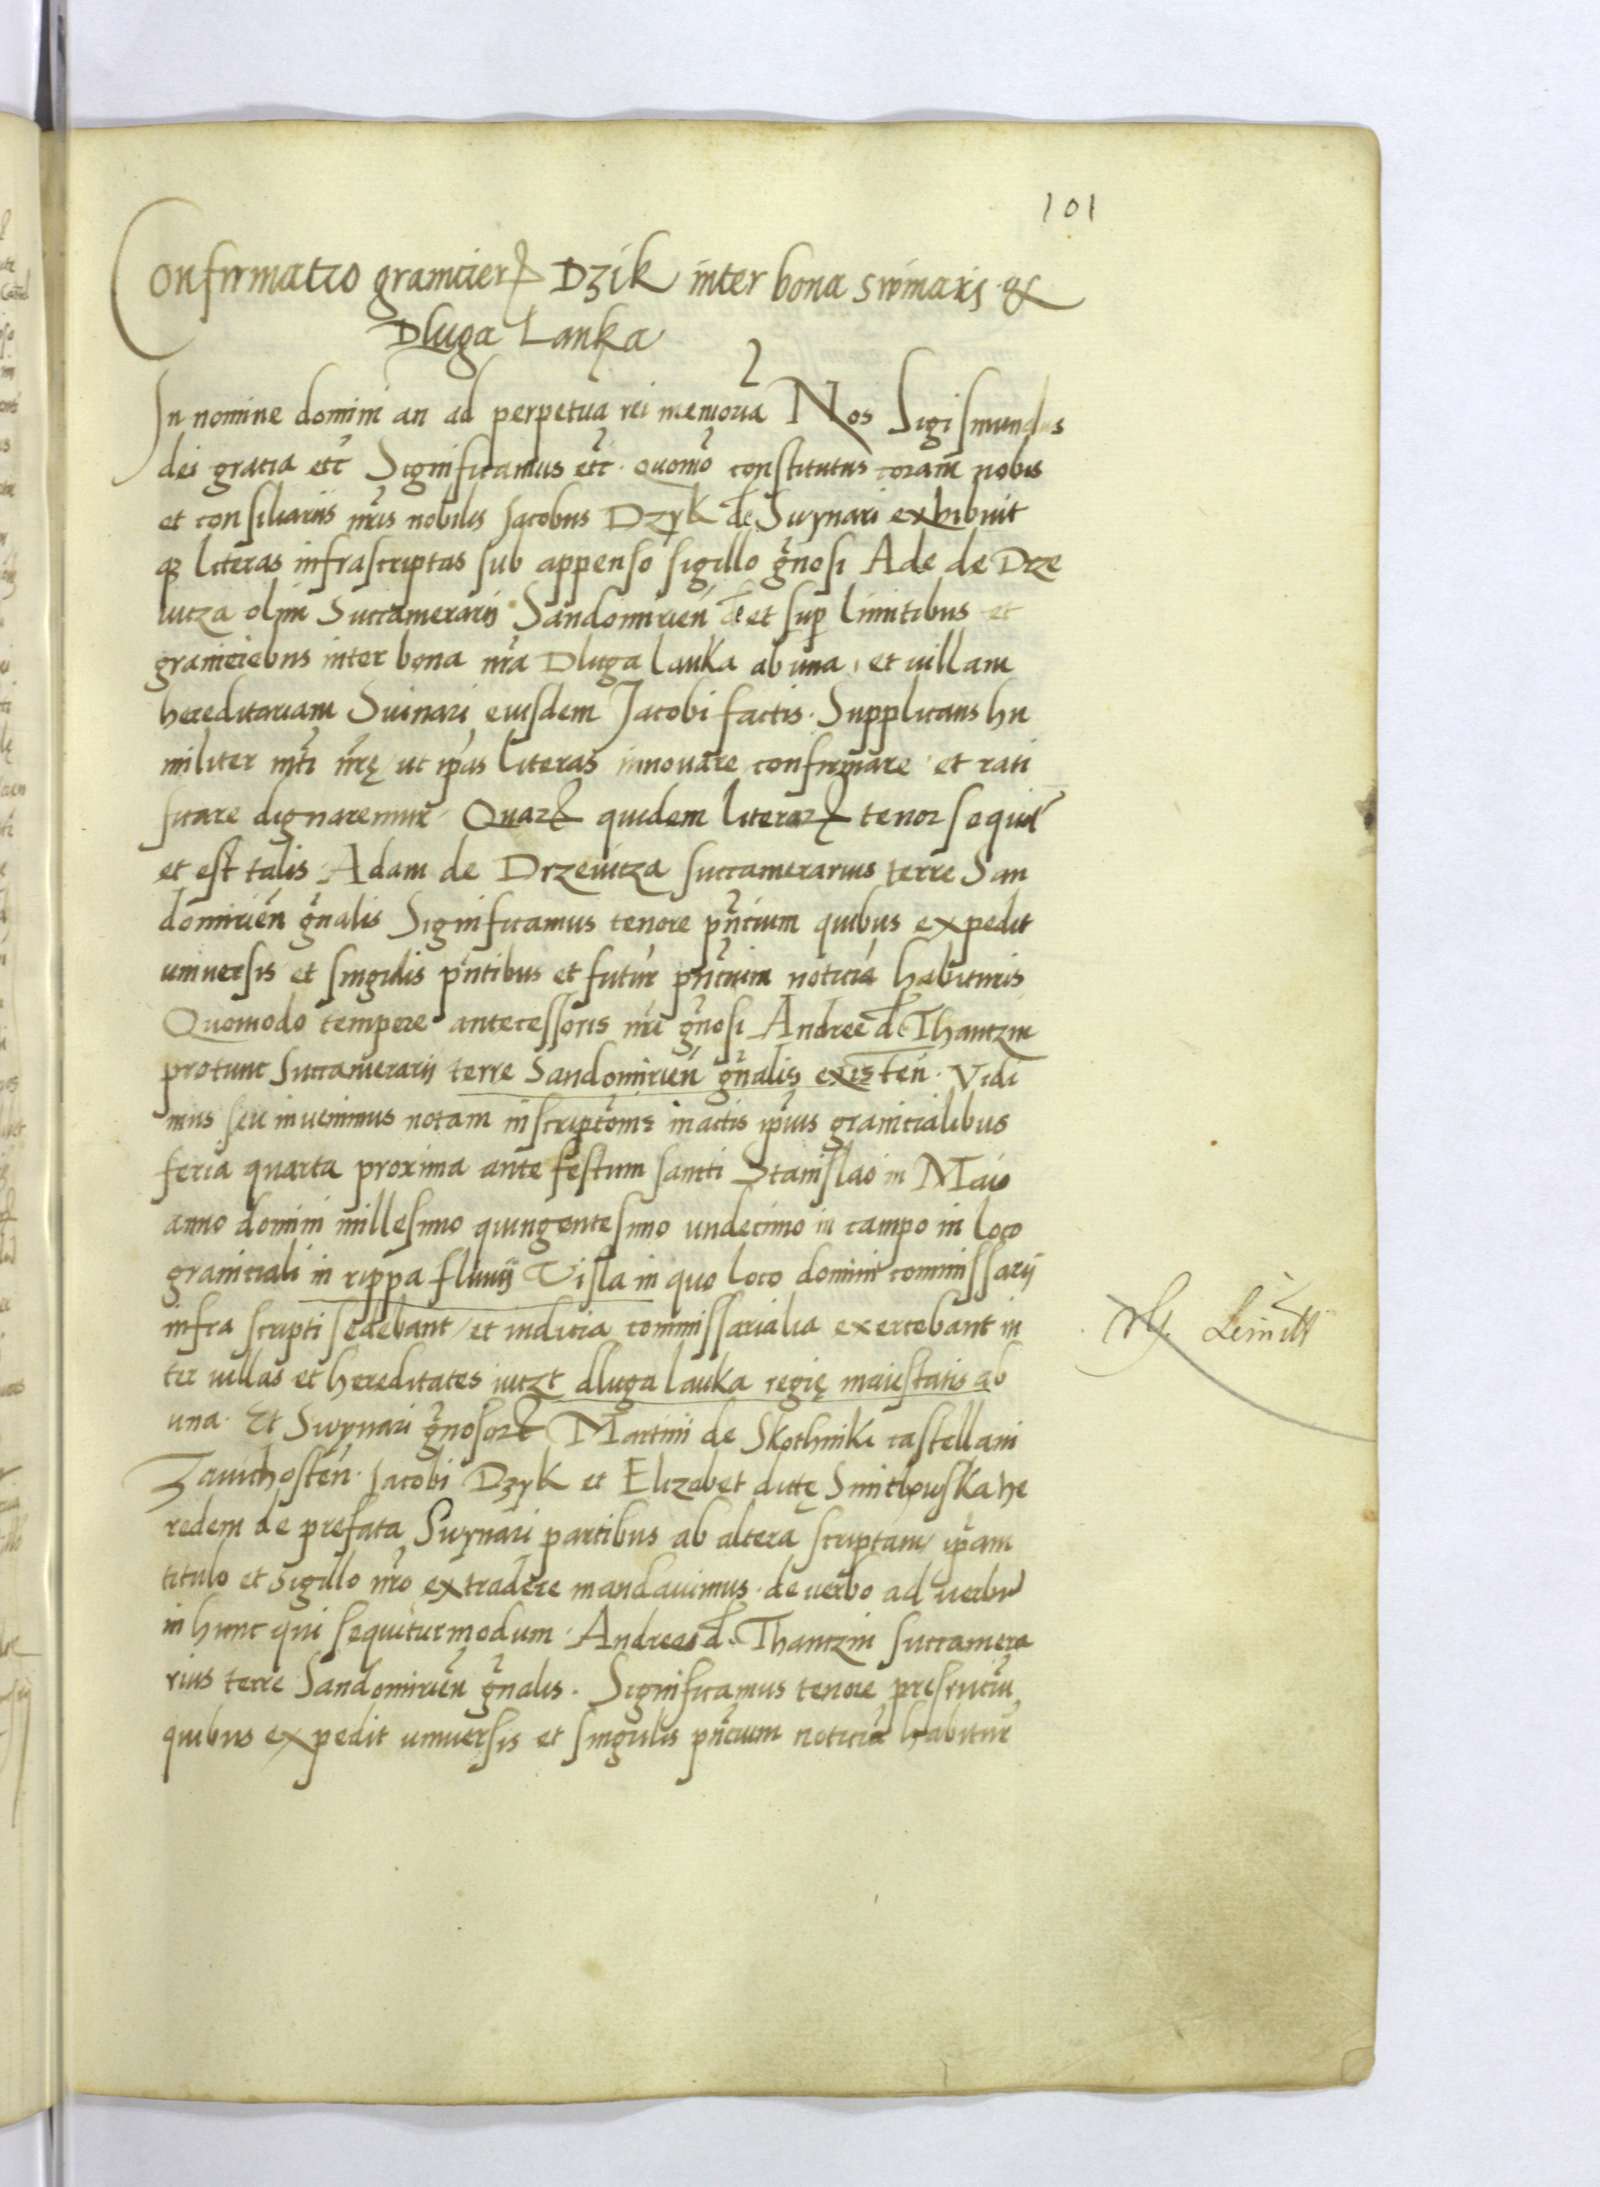 101
Confirmatio granicierꝝ Dzik inter bona swinaris &
Dluga Lanka
In nomine domini an ad perpetuā rei memoriā Nos Sigismundus
dei gratia etc̄ Significamus etc̄. quomō constitutus coram nobis
et consiliariis nr̄is nobilis Jacobus Dzyk de Swynari exhibuit
literas infrascriptas sub appenso sigillo gn̄osi Ade de Drze
uicza olim Succamerarij Sandomirien̄ de et sup limitibus et
graniciebus inter bona nr̄a Dluga lanka ab una, et uillam
hereditariam Swinari eiusdem Jacobi factis. Supplicans hu
militer mt̄i nr̄ę ut ip̄as literas innouare confirmare et rati
ficare dignaremur. Quarꝝ quidem literarꝝ tenor sequit̄
et est talis. Adam de Drzeuicza succamerarius terre San
domirien̄ gn̄alis Significamus tenore pn̄cium quibus expedit
uniuersis et singulis pn̄tibus et futur̄ pn̄cium noticiā habituris
Quomodo tempore antecessoris nr̄i gn̄osi Andree de Thanczin
protunc Succamerarij terre Sandomirien̄ gn̄alis existen̄. Vidi
mus seu inuenimus notam inscriptōnis in actis ip̄ius granicialibus
feria quarta proxima ante festum sancti Stanislao in Maio
anno domini millesimo quingentesimo undecimo in campo in loco
graniciali in rippa fluuij Visla in quo loco domini commissarij
infra scripti sedebant et iudicia commissarialia exercebant in
ter uillas et hereditates iuczt dluga lanka regię maiestatis ab
una. Et Swynari gn̄osorꝝ Martini de Skothniki castellani
Zauichosten̄. Jacobi Dzyk et Elizabet dictę he
redem de prefata Swynari partibus ab altera scriptam ip̄am
titulo et sigillo nr̄o extradere mandauimus. de uerbo ad uerbū
in hunc qui sequitur modum. Andreas de Thanczin succamera
rius terre Sandomirien̄ gn̄alis. Significamus tenore presenciū
quibus expedit uniuersis et singulis pn̄cium noticiā habitur̄